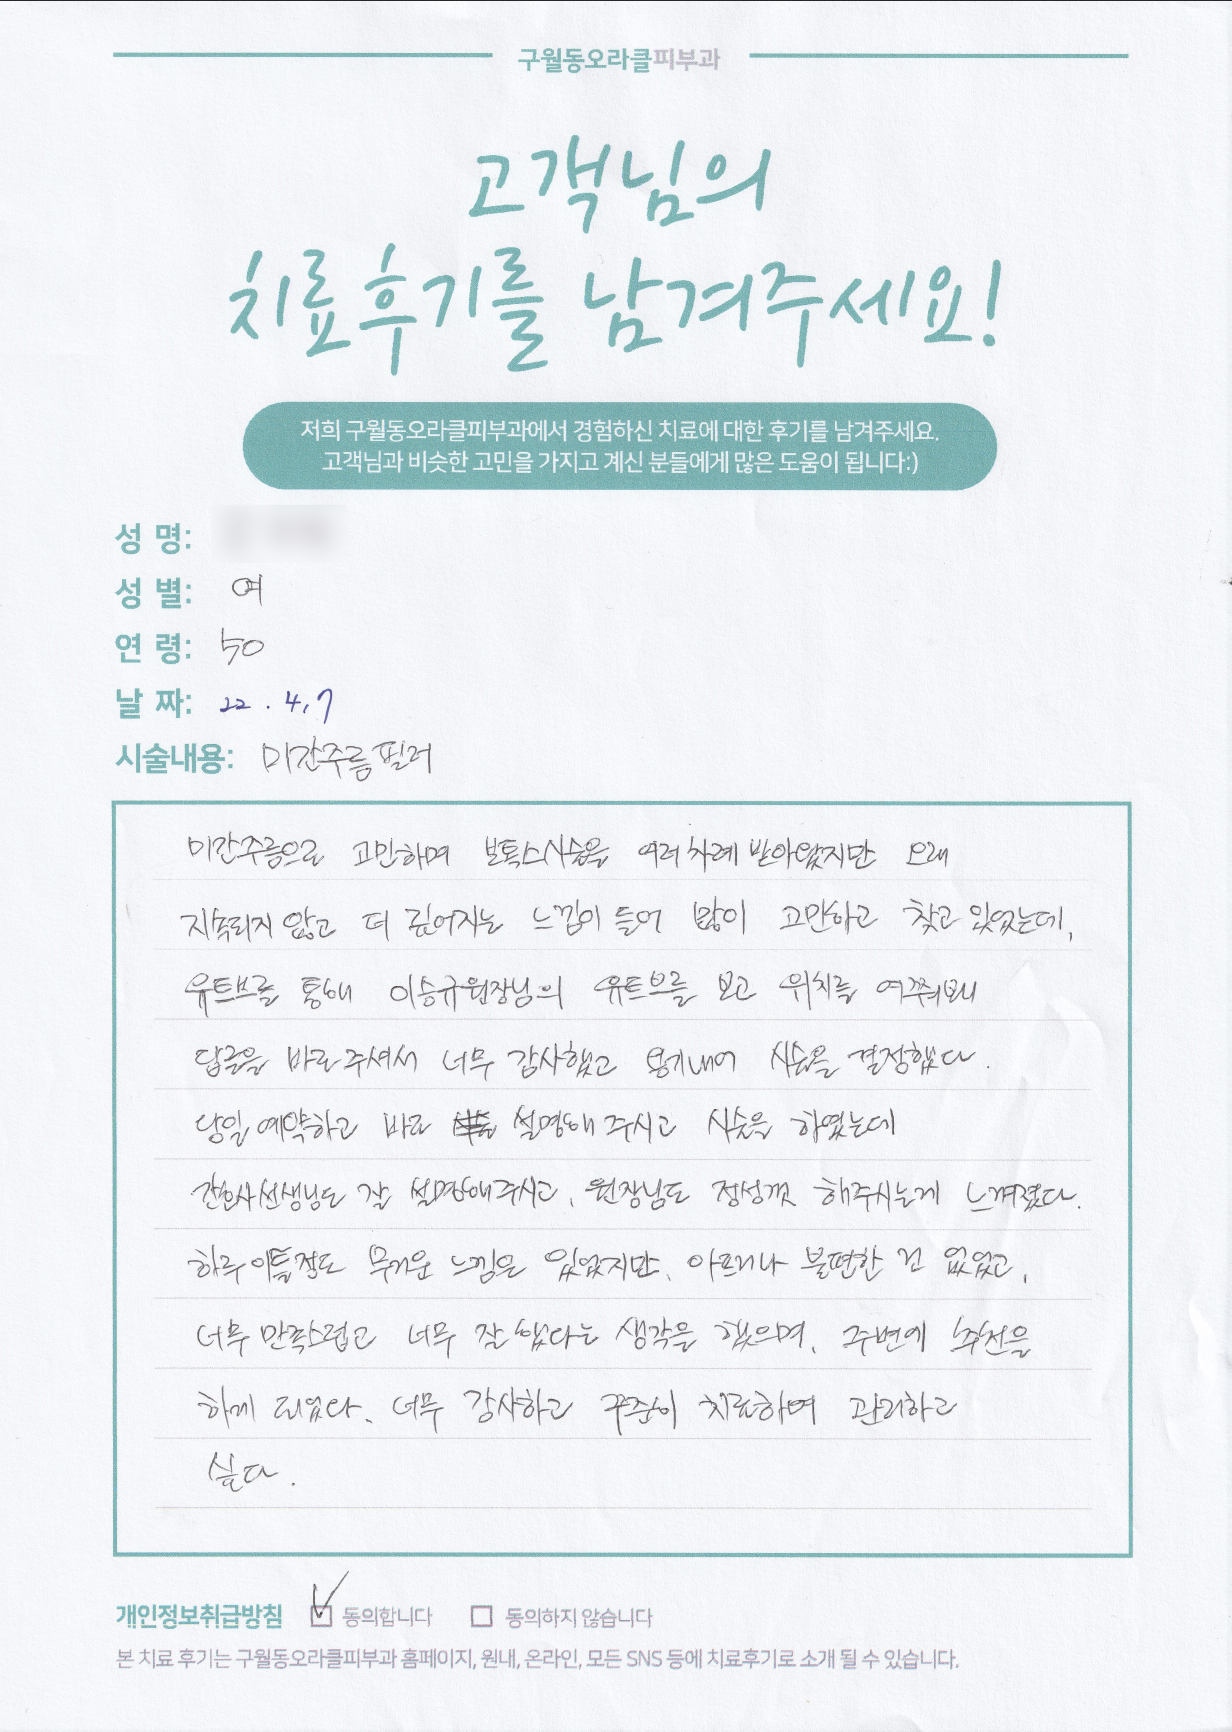 구월동오라클피부과
고객님의
치료후기를 남겨주세요!
저희 구월동오라클피부과에서 경험하신 치료에 대한 후기를 남겨주세요.
고객님과 비슷한 고민을 가지고 계신 분들에게 많은 도움이 됩니다:)
성 명:
성 별: 여
연 령: 50
날 짜: 22. 4. 7
시술내용: 미간주름필러
미간주름으로 고민하며 보톡스시술을 여러차례 받아왔지만 오래
지속되지 않고 더 깊어지는 느낌이 들어 많이 고민하고 찾고 있었는데,
유트브를 통해 이승규원장님의 유트브를 보고 위치를 여쭤보니
답글을 바로 주셔서 너무 감사했고 용기내어 시술을 결정했다.
당일 예약하고 바로 설명해 주시고 시술을 하였는데
간호사선생님도 잘 설명해주시고, 원장님도 정성껏 해주시는게 느껴졌다.
하루 이틀정도 무거운 느낌은 있었지만, 아프거나 불편한 건 없었고,
너무 만족스럽고 너무 잘했다는 생각을 했으며, 주변에 추천을
하게 되었다. 너무 감사하고 꾸준히 치료하며 관리하고
싶다.
개인정보취급방침 동의합니다 동의하지 않습니다
본 치료 후기는 구월동오라클피부과 홈페이지, 원내, 온라인, 모든 SNS 등에 치료후기로 소개 될 수 있습니다.